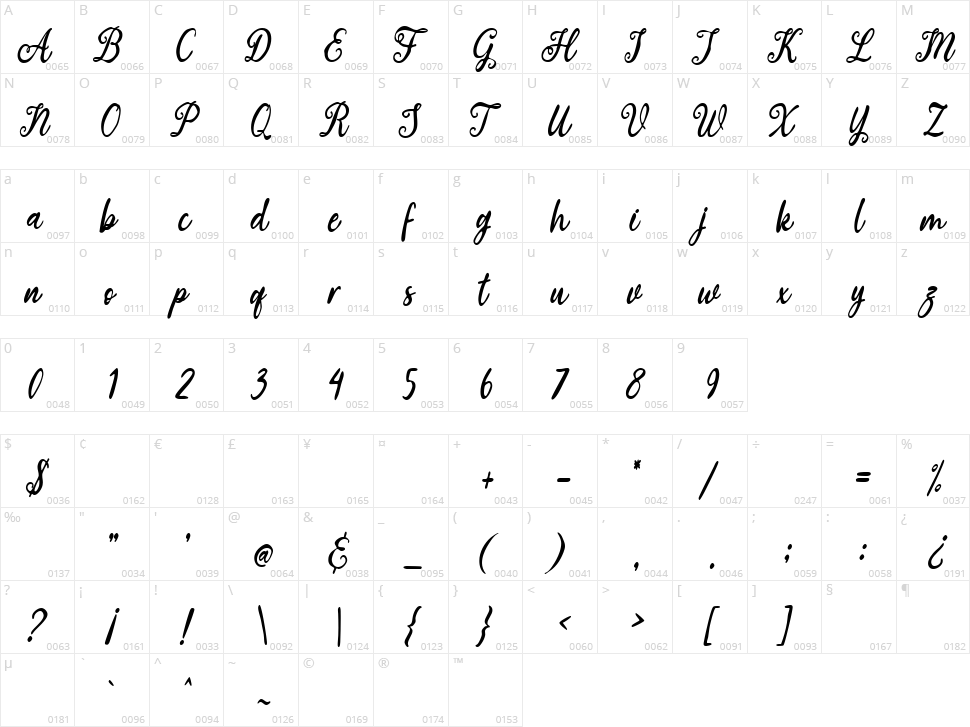 A B C D E F G H I J K L M
A B C D E F G H I J K L M
0065 0066 0067 0068 0069 0070 0071 0072 0073 0074 0075 0076 0077
N O P Q R S T U V W X Y Z
N O P Q R S T U V W X Y Z
0078 0079 0080 0081 0082 0083 0084 0085 0086 0087 0088 0089 0090
a b c d e f g h i j k l m
a b c d e f g h i j k l m
0097 0098 0099 0100 0101 0102 0103 0104 0105 0106 0107 0108 0109
n o p q r s t u v w x y z
n o p q r s t u v w x y z
0110 0111 0112 0113 0114 0115 0116 0117 0118 0119 0120 0121 0122
0 1 2 3 4 5 6 7 8 9
0 1 2 3 4 5 6 7 8 9
0048 0049 0050 0051 0052 0053 0054 0055 0056 0057
$ ¢ € £ ¥ ¤ + - * / ÷ = %
$ + - * / = %
0036 0162 0128 0163 0165 0164 0043 0045 0042 0047 0247 0061 0037
‰ " ' @ & _ ( ) , . ; : ¿
" ' @ & _ ( ) , . ; : ¿
0137 0034 0039 0064 0038 0095 0040 0041 0044 0046 0059 0058 0191
? ¡ ! \ | { } < > [ ] § ¶
? ¡ ! \ | { } < > [ ]
0063 0161 0033 0092 0124 0123 0125 0060 0062 0091 0093 0167 0182
µ ` ^ ~ © ® ™
` ^ ~
0181 0096 0094 0126 0169 0174 0153